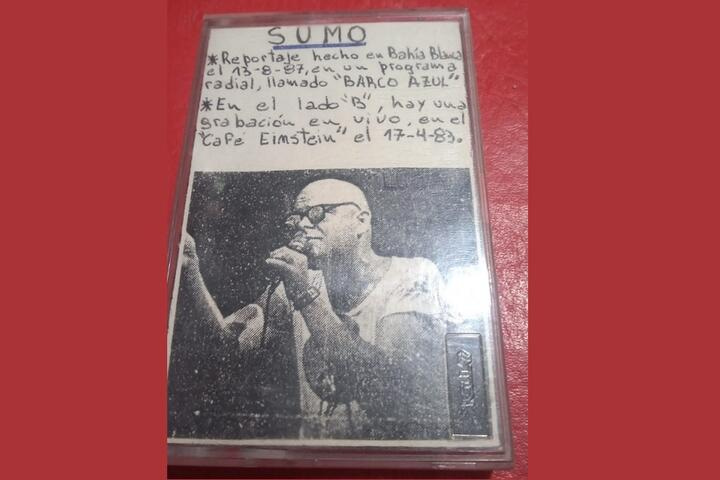 SUMO
*Reportaje hecho en Bahía Blanca
el 13-8-87, en un programa
radial, llamado "BARCO AZUL"
*En el lado "B", hay una
grabación en vivo, en el
"Café Eimstein" el 17-4-83.